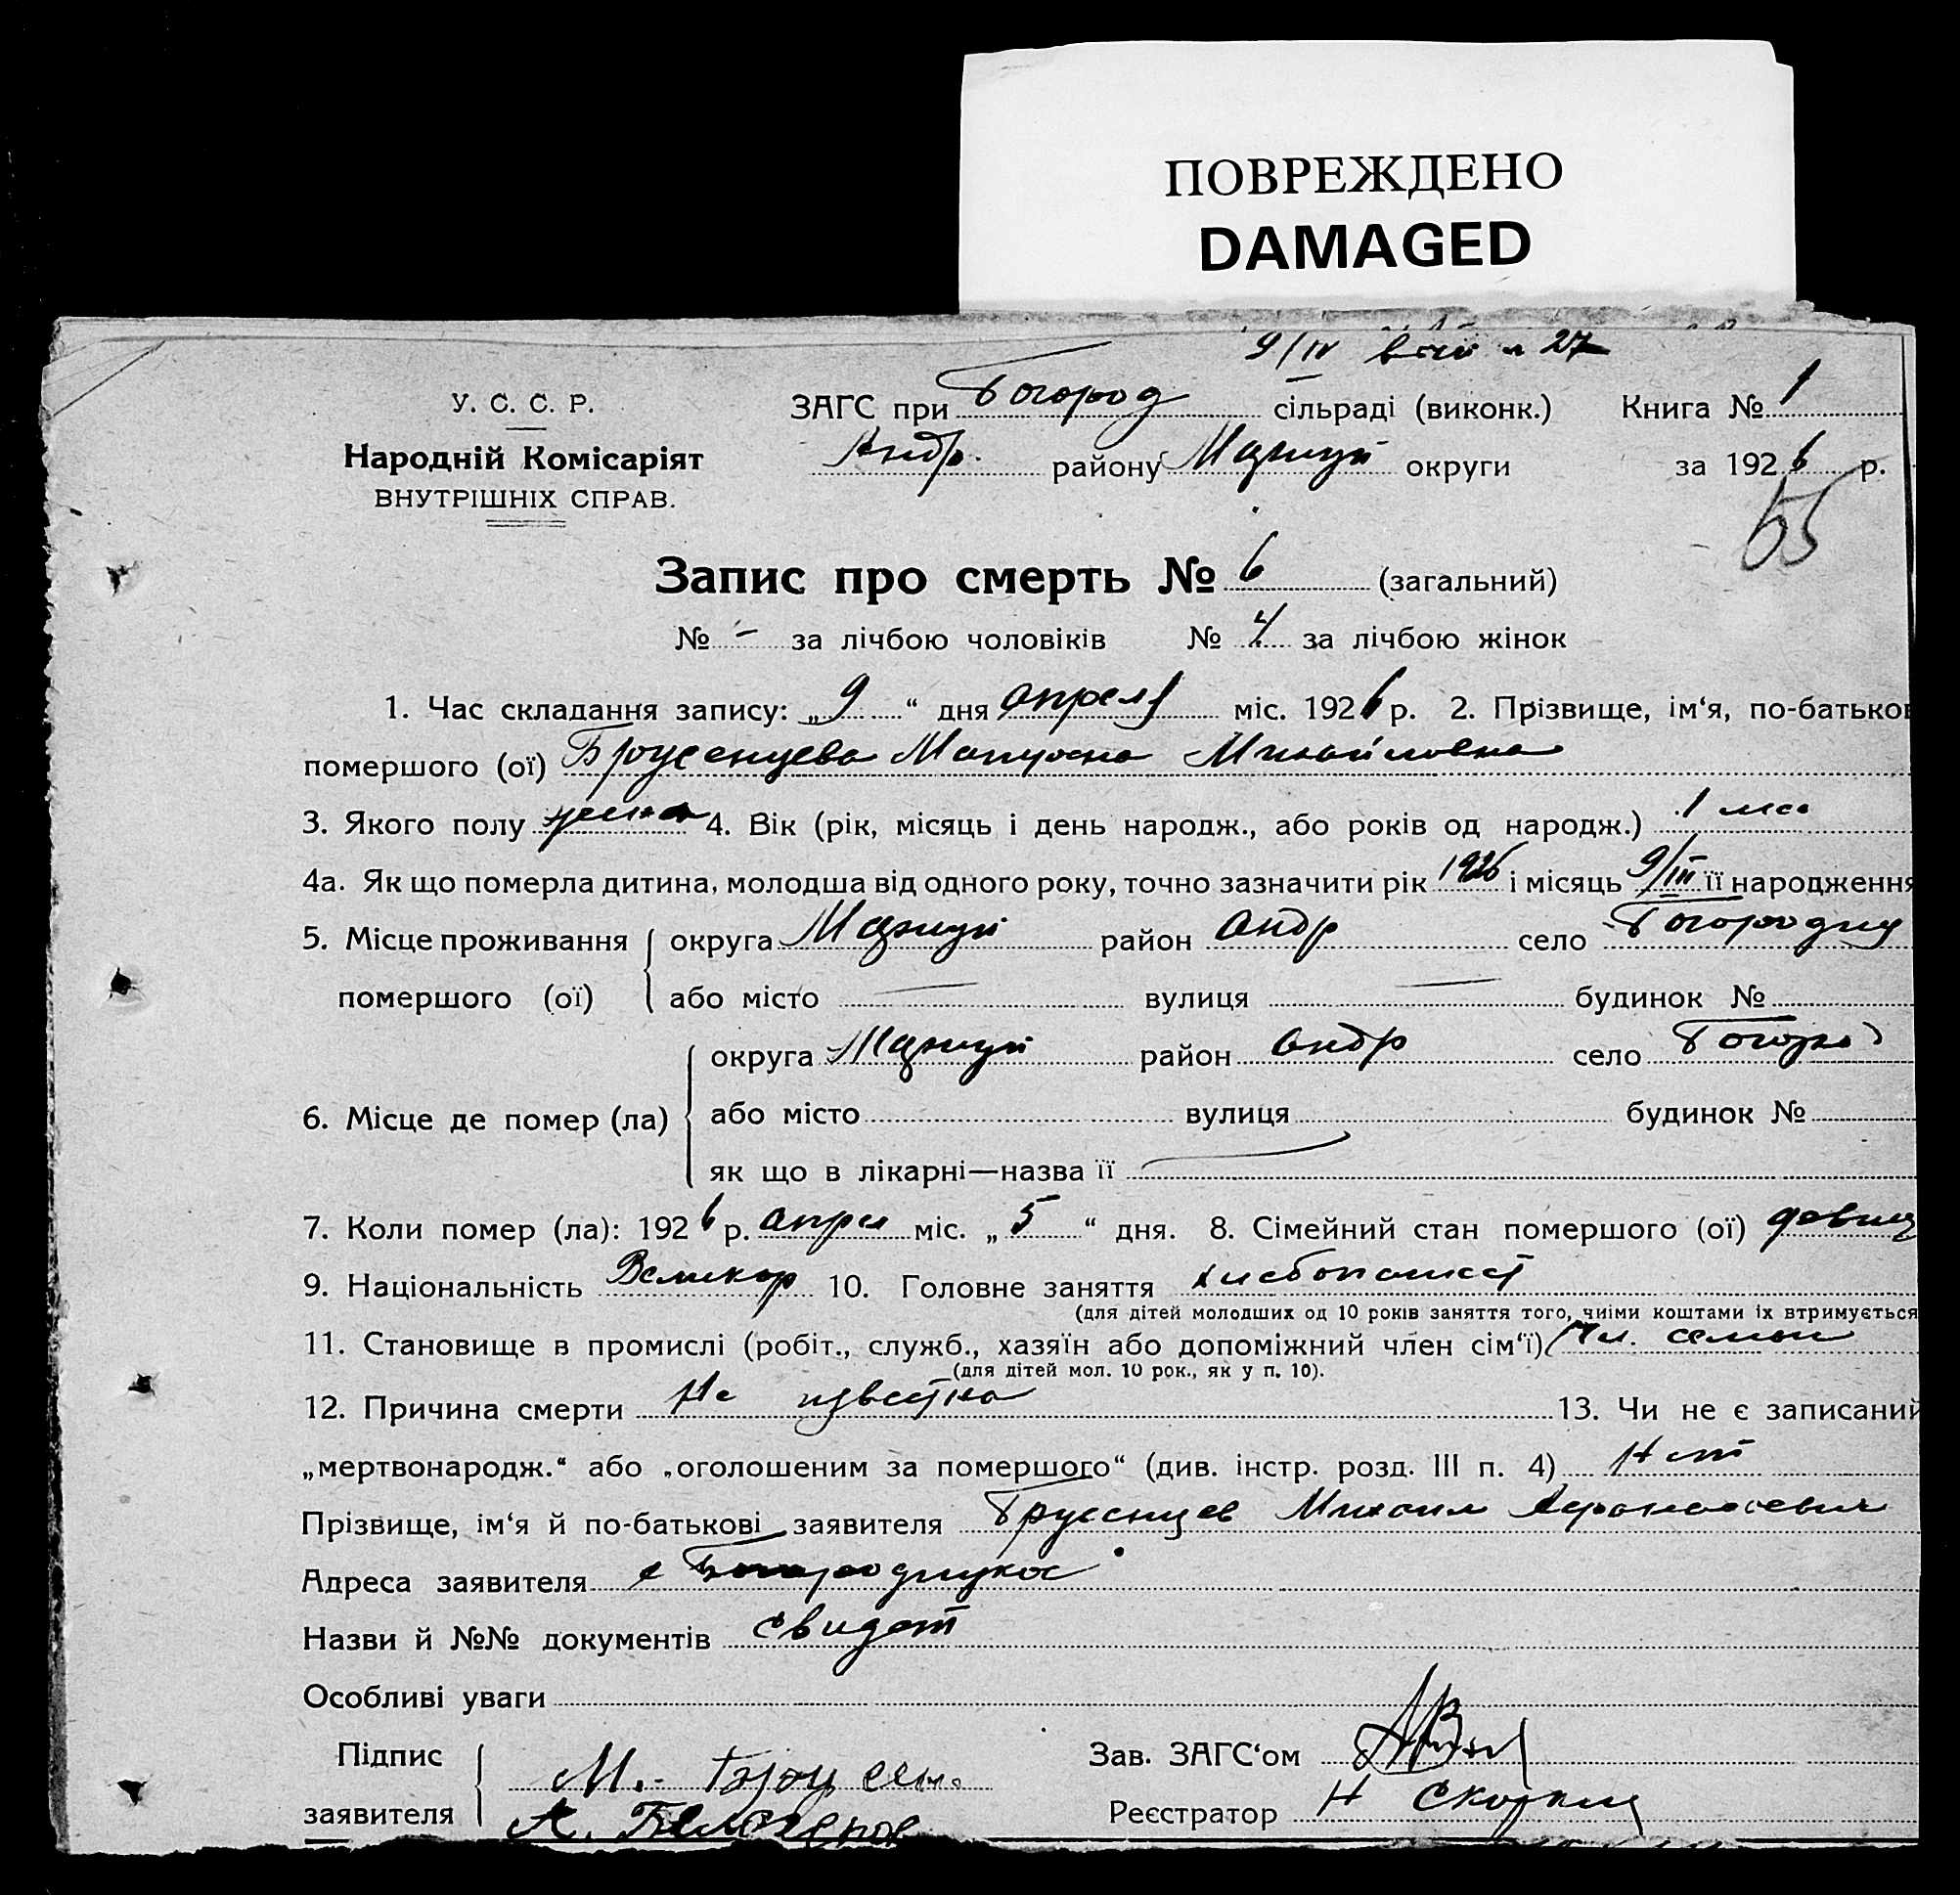 ПОВРЕЖДЕНО
DAMAGED
9/IV 27
У. С. С. Р.
ЗАГС при Богород сільраді (виконк.) Книга № 1
Народній Комісаріят
Андр. району Мариуп округи за 1926 р.
ВНУТРІШНІХ СПРАВ.
55
Запис про смерть № 6 (загальний)
№ - за лічбою чоловіків № 4 за лічбою жінок
1. Час складання запису: „9“ дня апреля міс. 1926 р. 2. Прізвище, ім‘я, по-батьков
помершого (ої) Брусенцева Михайловна
3. Якого полу жена 4. Вік (рік, місяць і день народж., або років од народж.) 1 мес
4а. Як що померла дитина, молодша від одного року, точно зазначити рік 1926 і місяць 9/III її народження
5. Місце проживання округа Мариуп район Андр село Богородиц
помершого (ої) або місто — вулиця — будинок №
округа Мариуп район Андр село Богород
6. Місце де помер (ла) або місто вулиця будинок №
як що в лікарні—назва її
7. Коли помер (ла): 1926 р. апрел міс. „5“ дня. 8. Сімейний стан помершого (ої) девиц
9. Національність Великор 10. Головне заняття хлебопашест
(для дітей молодших од 10 років заняття того, чиїми коштами їх втримується
11. Становище в промислі (робіт., служб., хазяїн або допоміжний член сім‘ї) Чл. семьи
(для дітей мол. 10 рок., як у п. 10).
12. Причина смерти Не известна 13. Чи не є записаний
„мертвонародж.“ або „оголошеним за помершого“ (див. інстр. розд. III п. 4) Нет
Прізвище, ім‘я й по-батькові заявителя Брусенцев Михаил Афанасиевич
Адреса заявителя с Богородицкое
Назви й №№ документів свидет
Особливі уваги
Підпис
Зав. ЗАГС‘ом
М. Брусен.
заявителя
Реєстратор Н